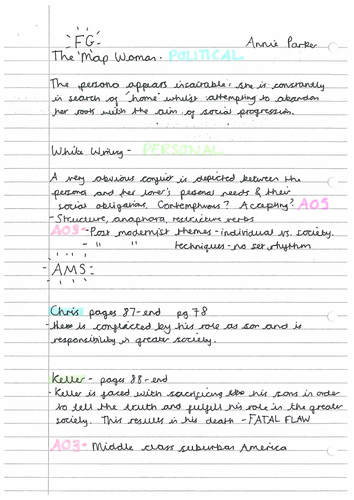 FG
Annie Parker
The Map Woman - POLITICAL
The persona appears insatiable: she is constantly
in search of 'home' whilst attempting to abandon
her roots with the aim of social progression.
White Writing - PERSONAL
A very obvious conflict is depicted between the
persona and her lover's personal needs & their
social obligation. Contemptuous? Accepting? AO5
- Structure, anaphora, restrictive verbs
AO3 - Post modernist themes - individual vs. society.
- " " techniques - no set rhythm
AMS:
Chris pages 87-end pg 78
- He is conflicted by his role as son and is
responsibility in greater society.
Keller - pages 88-end
- Keller is faced with sacrificing his sons in order
to tell the truth and fulfill his role in the greater
society. This results in his death - FATAL FLAW
AO3 - Middle class suburban America